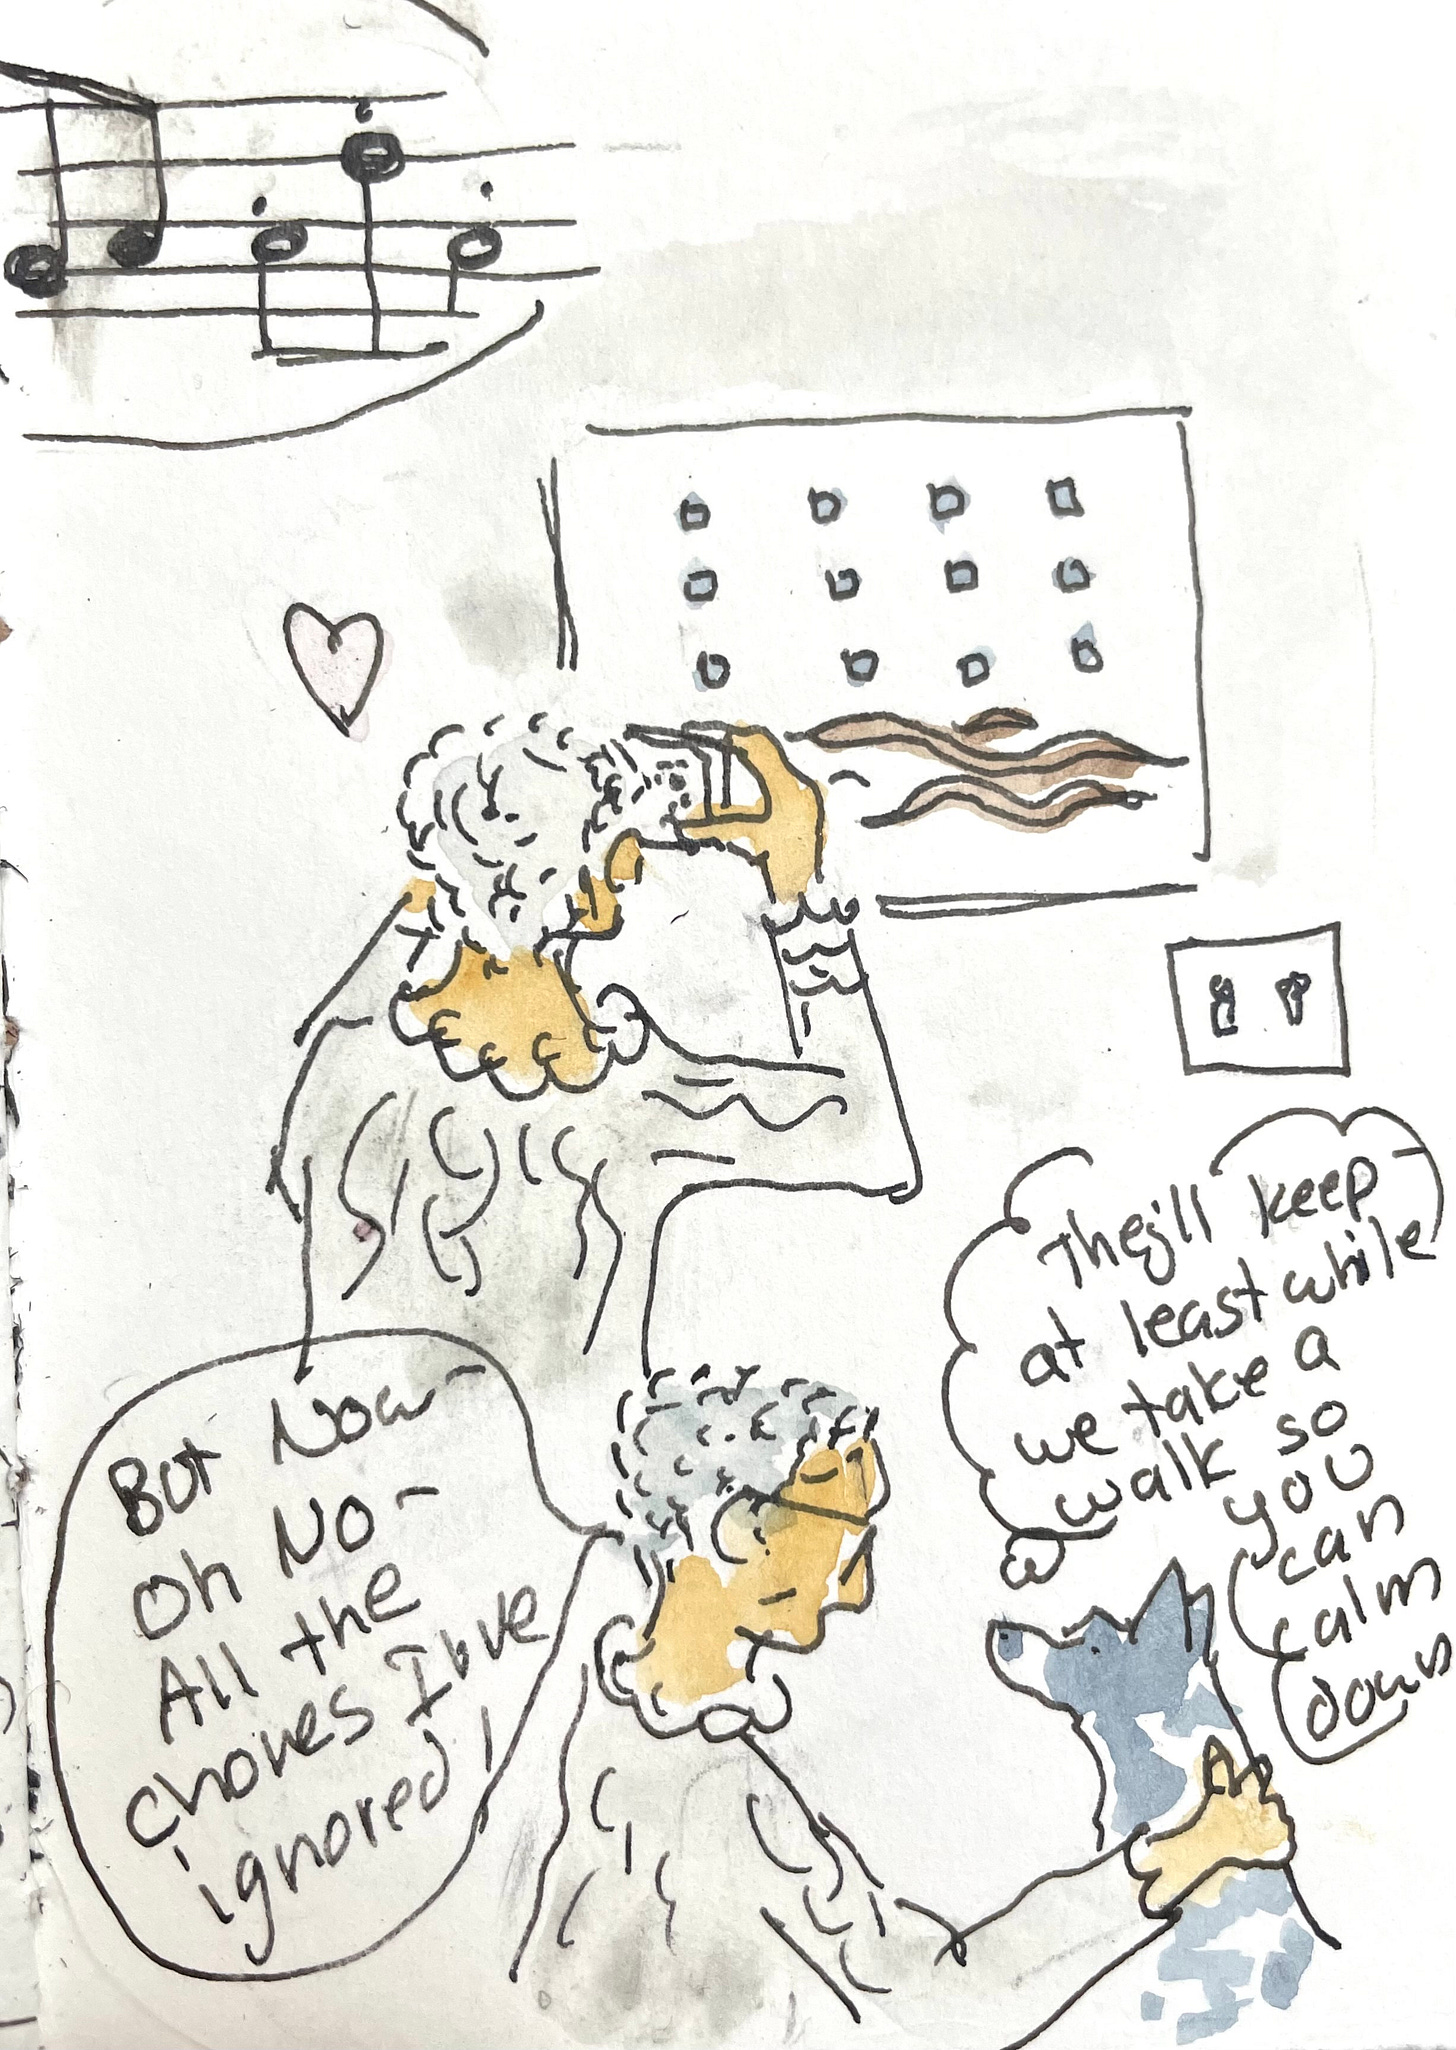 But Now-
Oh No-
All the
chores I've
ignored!
They'll keep
at least while
we take a
walk so
you
can
calm
down